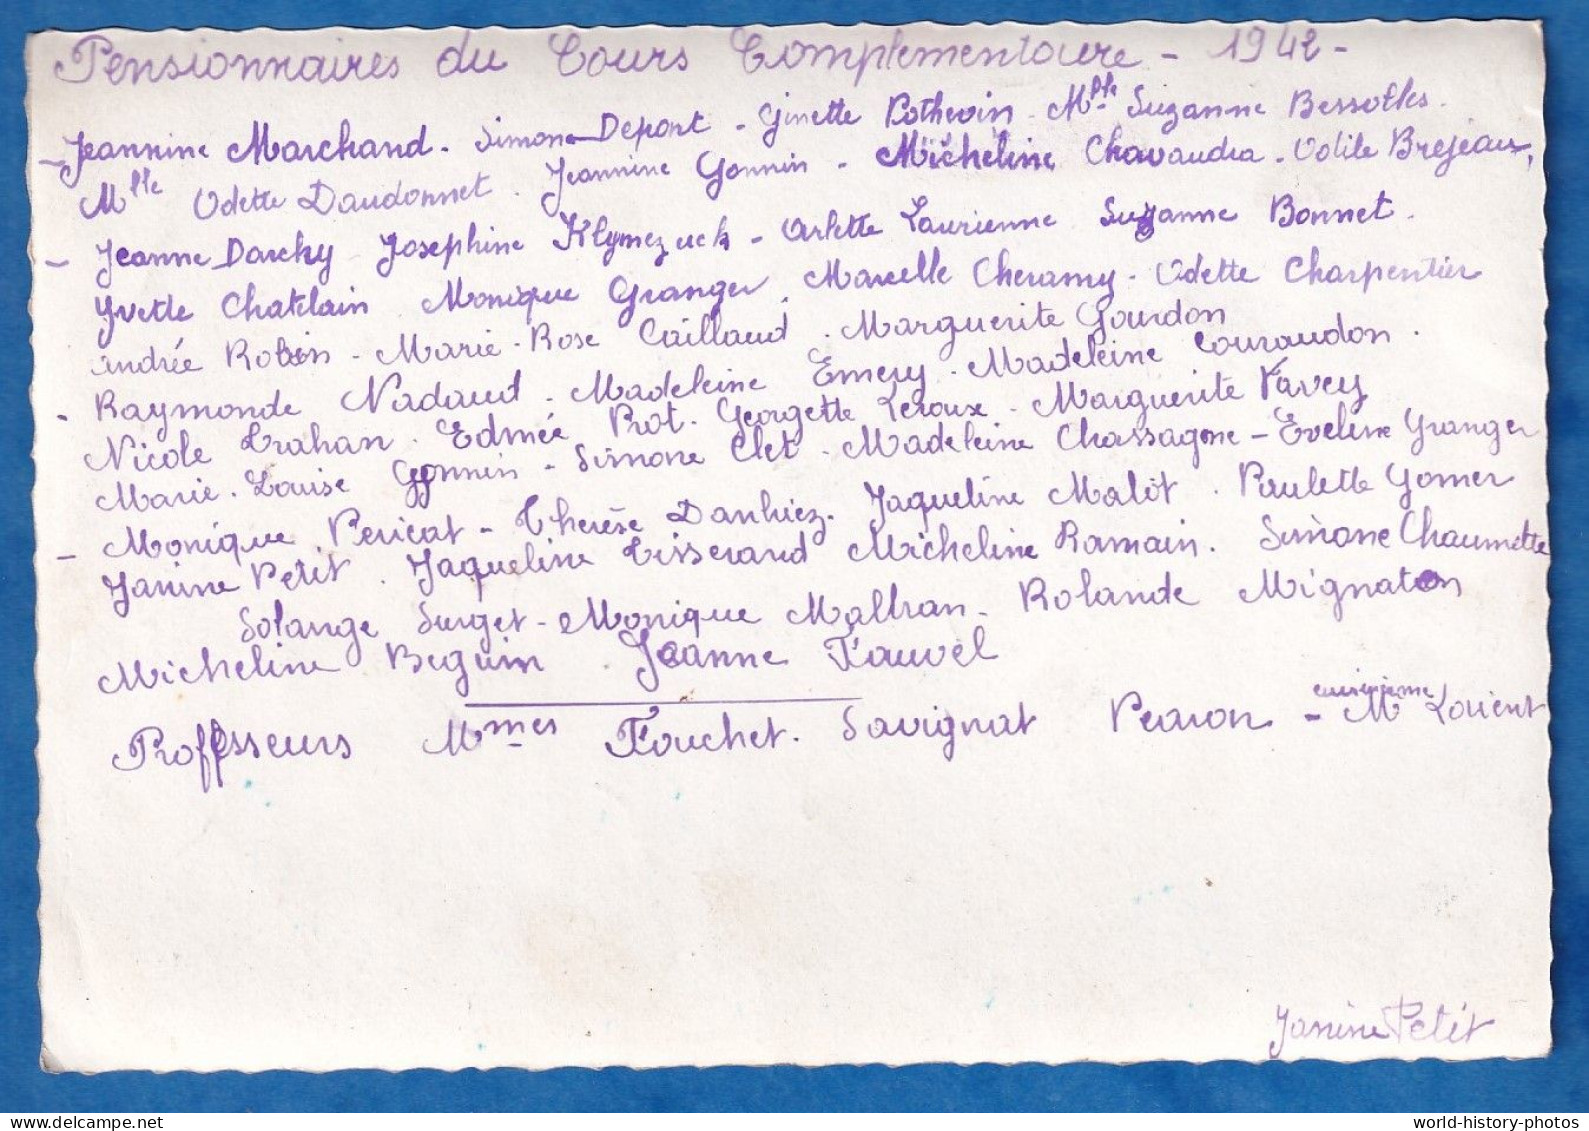 Pensionnaires du Cours Complementaire - 1942 -
- Jeannine Marchand. Simone Depont - Ginette Pothevin - Mlle Suzanne Bessolles.
Mlle Odette Daudonnet. Jeannine Gonnin - Micheline Chavaudra - Odile Brejeaux,
- Jeanne Darchy Josephine Klymezuck - Arlette Laurienne Suzanne Bonnet.
Yvette Chatelain Monique Granger. Marcelle Cheramy - Odette Charpentier
Andrée Robin - Marie-Rose Caillaud. Marguerite Gourdon
- Raymonde Nadaud. Madeleine Emery. Madeleine Couraudon.
Nicole Trahan. Edmée Prot. Georgette Leroux. Marguerite Favey
Marie-Louise Gonnin - Simone Clet. Madeleine Chassagne - Eveline Granger
- Monique Pericat - Therèse Danhiez. Jaqueline Malöt. Paulette Gomer
Janine Petit. Jaqueline Tisserand Micheline Romain. Simone Chaumette
Solange Surget - Monique Maltran - Rolande Mignaton
Micheline Beguin Jeanne Fauvel
Professeurs Mmes Fouchet. Savignat Pearon - cuisinière Me Lorient
Janine Petit
world-history-photos